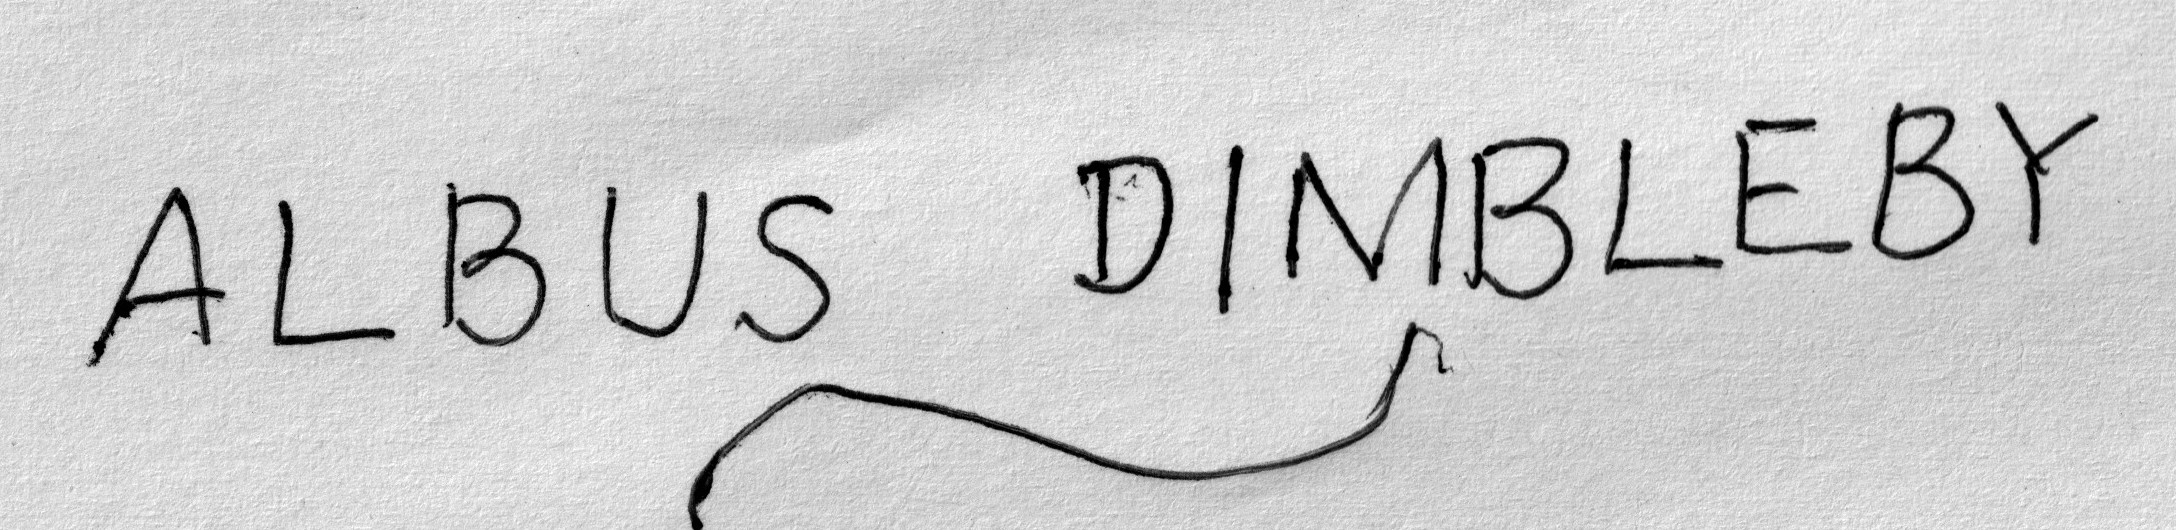 ALBUS DIMBLEBY